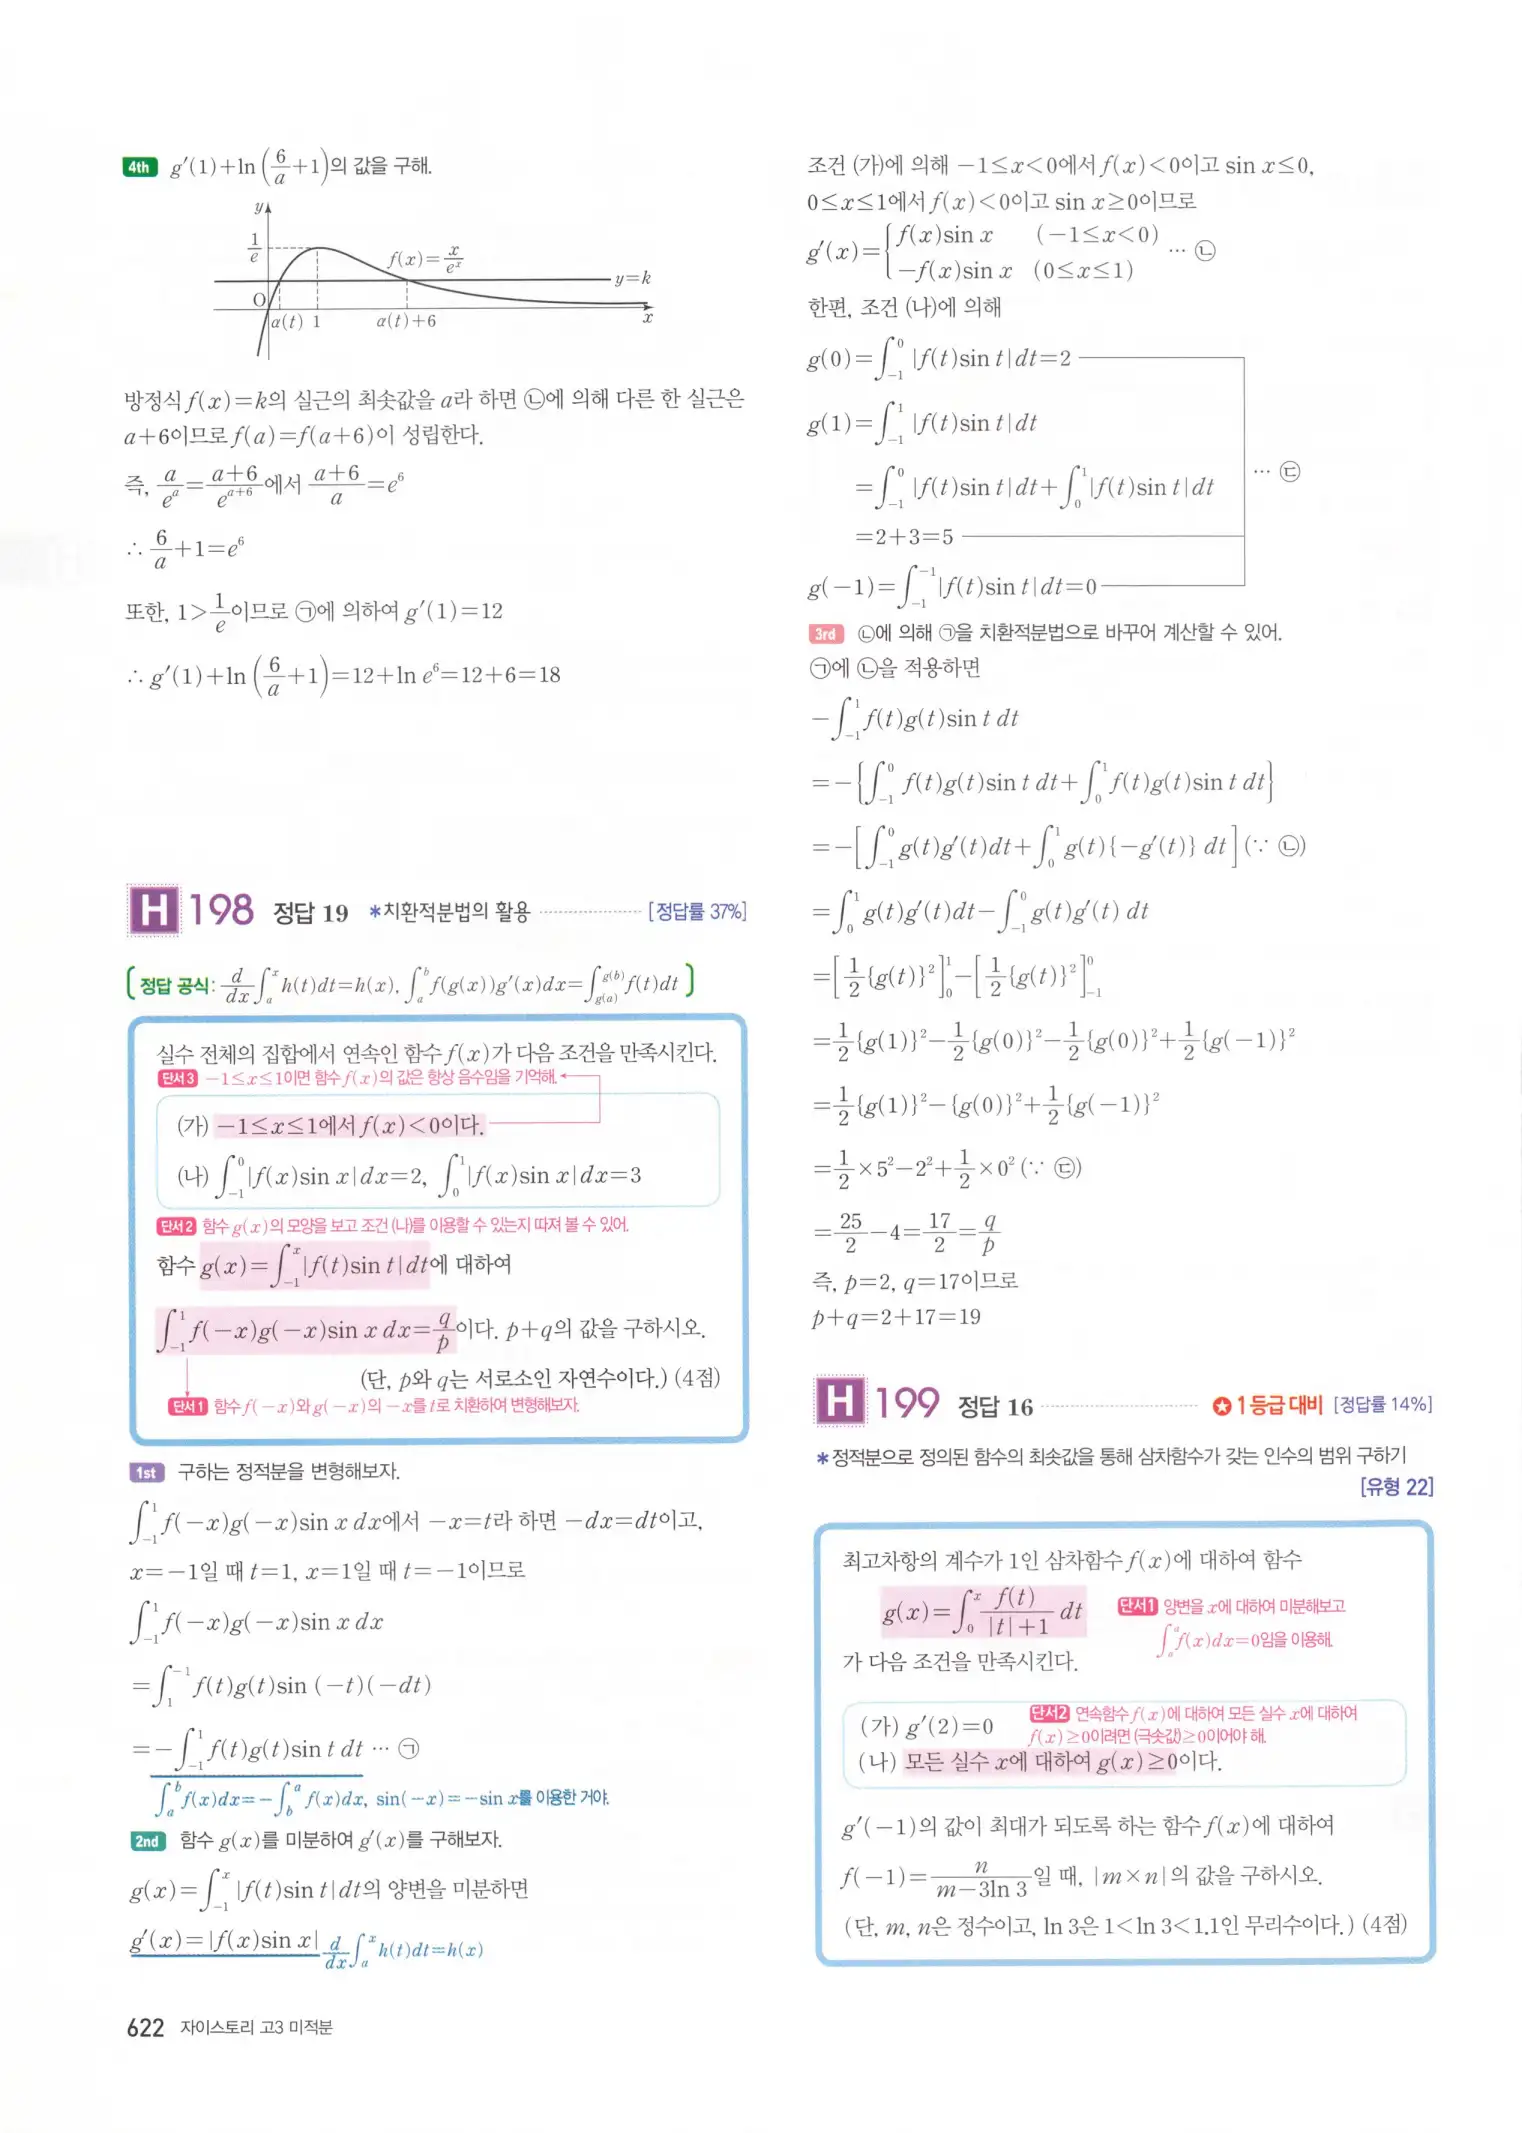 4th g′(1)+ln(6/a+1)의 값을 구해.
y
1/e
f(x)=x/eˣ
y=k
O
α(t) 1 α(t)+6 x
방정식 f(x)=k의 실근의 최솟값을 a라 하면 ㉡에 의해 다른 한 실근은
a+6이므로 f(a)=f(a+6)이 성립한다.
즉, a/eᵃ=(a+6)/eᵃ⁺⁶에서 (a+6)/a=e⁶
∴ 6/a+1=e⁶
또한, 1>1/e이므로 ㉠에 의하여 g′(1)=12
∴ g′(1)+ln(6/a+1)=12+ln e⁶=12+6=18
H 198 정답 19 *치환적분법의 활용 [정답률 37%]
(정답 공식: d/dx∫ₐˣ h(t)dt=h(x), ∫ₐᵇ f(g(x))g′(x)dx=∫_{g(a)}^{g(b)} f(t)dt)
실수 전체의 집합에서 연속인 함수 f(x)가 다음 조건을 만족시킨다.
단서3 −1≤x≤1이면 함수 f(x)의 값은 항상 음수임을 기억해.
(가) −1≤x≤1에서 f(x)<0이다.
(나) ∫₋₁⁰|f(x)sin x|dx=2, ∫₀¹|f(x)sin x|dx=3
단서2 함수 g(x)의 모양을 보고 조건 (나)를 이용할 수 있는지 따져 볼 수 있어.
함수 g(x)=∫₋₁ˣ|f(t)sin t|dt에 대하여
∫₋₁¹ f(−x)g(−x)sin x dx=q/p이다. p+q의 값을 구하시오.
(단, p와 q는 서로소인 자연수이다.) (4점)
단서1 함수 f(−x)와 g(−x)의 −x를 t로 치환하여 변형해보자.
1st 구하는 정적분을 변형해보자.
∫₋₁¹ f(−x)g(−x)sin x dx에서 −x=t라 하면 −dx=dt이고,
x=−1일 때 t=1, x=1일 때 t=−1이므로
∫₋₁¹ f(−x)g(−x)sin x dx
=∫₁⁻¹ f(t)g(t)sin (−t)(−dt)
=−∫₋₁¹ f(t)g(t)sin t dt ⋯ ㉠
∫ₐᵇ f(x)dx=−∫_b^a f(x)dx, sin(−x)=−sin x를 이용한 거야.
2nd 함수 g(x)를 미분하여 g′(x)를 구해보자.
g(x)=∫₋₁ˣ |f(t)sin t|dt의 양변을 미분하면
g′(x)=|f(x)sin x| d/dx∫ₐˣ h(t)dt=h(x)
622 자이스토리 고3 미적분
조건 (가)에 의해 −1≤x<0에서 f(x)<0이고 sin x≤0,
0≤x≤1에서 f(x)<0이고 sin x≥0이므로
g′(x)={ f(x)sin x (−1≤x<0)
−f(x)sin x (0≤x≤1) ⋯ ㉡
한편, 조건 (나)에 의해
g(0)=∫₋₁⁰ |f(t)sin t|dt=2
g(1)=∫₋₁¹ |f(t)sin t|dt
=∫₋₁⁰ |f(t)sin t|dt+∫₀¹|f(t)sin t|dt ⋯ ㉢
=2+3=5
g(−1)=∫₋₁⁻¹|f(t)sin t|dt=0
3rd ㉡에 의해 ㉠을 치환적분법으로 바꾸어 계산할 수 있어.
㉠에 ㉡을 적용하면
−∫₋₁¹ f(t)g(t)sin t dt
=−{∫₋₁⁰ f(t)g(t)sin t dt+∫₀¹ f(t)g(t)sin t dt}
=−[∫₋₁⁰ g(t)g′(t)dt+∫₀¹ g(t){−g′(t)} dt] (∵ ㉡)
=∫₀¹ g(t)g′(t)dt−∫₋₁⁰ g(t)g′(t) dt
=[1/2{g(t)}²]₀¹−[1/2{g(t)}²]₋₁⁰
=1/2{g(1)}²−1/2{g(0)}²−1/2{g(0)}²+1/2{g(−1)}²
=1/2{g(1)}²−{g(0)}²+1/2{g(−1)}²
=1/2×5²−2²+1/2×0² (∵ ㉢)
=25/2−4=17/2=q/p
즉, p=2, q=17이므로
p+q=2+17=19
H 199 정답 16 ✪ 1등급 대비 [정답률 14%]
*정적분으로 정의된 함수의 최솟값을 통해 삼차함수가 갖는 인수의 범위 구하기
[유형 22]
최고차항의 계수가 1인 삼차함수 f(x)에 대하여 함수
g(x)=∫₀ˣ f(t)/(|t|+1) dt
단서1 양변을 x에 대하여 미분해보고
∫ₐᵃ f(x)dx=0임을 이용해.
가 다음 조건을 만족시킨다.
(가) g′(2)=0
단서2 연속함수 f(x)에 대하여 모든 실수 x에 대하여
f(x)≥0이려면 (극솟값)≥0이어야 해.
(나) 모든 실수 x에 대하여 g(x)≥0이다.
g′(−1)의 값이 최대가 되도록 하는 함수 f(x)에 대하여
f(−1)=n/(m−3ln 3)일 때, |m×n|의 값을 구하시오.
(단, m, n은 정수이고, ln 3은 1<ln 3<1.1인 무리수이다.) (4점)